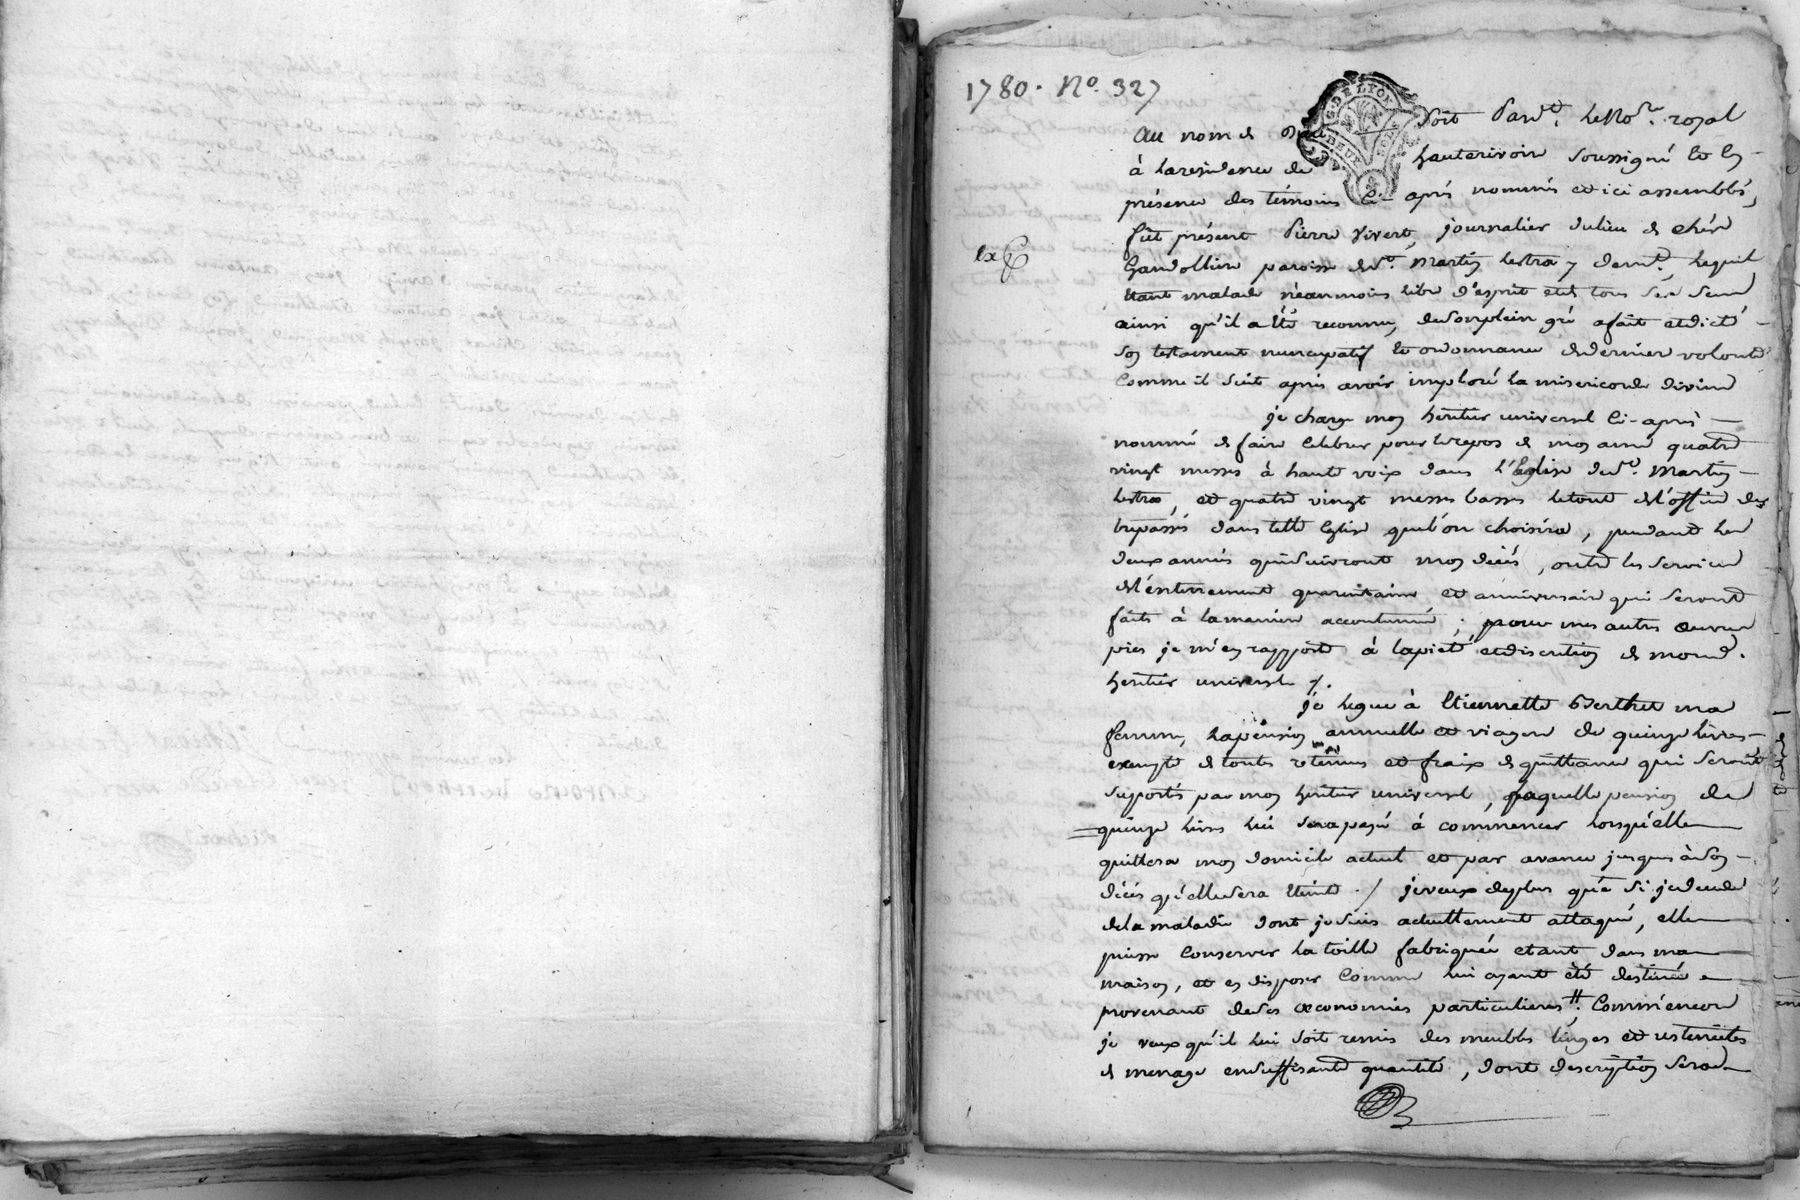 1780. No. 327
G. DE LYON
DEUX SOLS
Au nom de Dieu Soit Pard.t le No.re royal
à la residence de hauterivoire soussigné et en
présence des témoins ci-après nommés et ici assemblés,
fût présent Pierre Vivert, journalier du lieu de chés
Gandollière paroisse de S.t Martin lestra y demt., lequel
étant malade néanmoins libre d'esprit et de tous ses sens
ainsi qu'il a été reconnu, de son plein gré a fait et dicté
son testament nuncupatif et ordonnance de dernier volonté
comme il suit après avoir imploré la misericorde divine
je charge mon heritier universel ci-après
nommé de faire celebrer pour le repos de mon ame quatre
vingt messes à haute voix dans l'Eglise de S.t Martin
lestra, et quatre vingt messes basses le tout de l'office des
trepassés dans telle Eglise que l'on choisira, pendant les
deux années qui suivront mon décés, outre les services
d'enterrement quarantaine et anniversaire qui seront
faits à la manière accoutumé; pour mes autres œuvres
pies je m'en rapporte à la pieté et discretion de mond.
heritier universel /.
je legue à Etiennette Berthet ma
femme, la pension annuelle et viagere de quinze livres
exempte de toutes retenues et fraix de quittance qui seront
suportés par mon heritier universel, laquelle pension de
quinze livres lui sera payé à commencer lorsqu'elle
quittera mon domicile actuel et par avance jusques à son
décés qu'elle sera éteinte ./ je veux de plus que si je decede
de la maladie dont je suis actuellement attaqué, elle
puisse conserver la toille fabriquée etant dans ma
maison, et en disposer comme lui ayant été destinée
provenant de ses œconomies particulieres; Comm'encore
je veux qu'il lui soit remis des meubles linges et ustencites
de menage en suffisante quantité, dont description sera